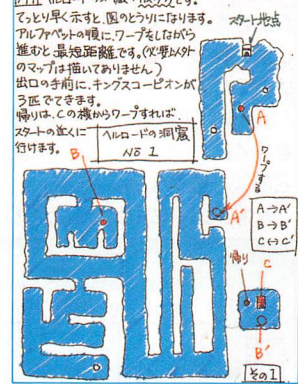 てっとり早く示すと、図のとうりになります。
アルファベットの順に、ワープをしながら
進むと最短距離です。(必要以外
のマップは描いてありません。)
出口の手前に、キングスコーピオンが
3匹でてきます。
帰りは、Cの横からワープすれば
スタートの近くに
行けます。
ヘルロードの洞窟
No 1
スタート地点
A
ワープする
B
A'
A→A'
B→B'
C↔C'
帰り
C
B'
その1